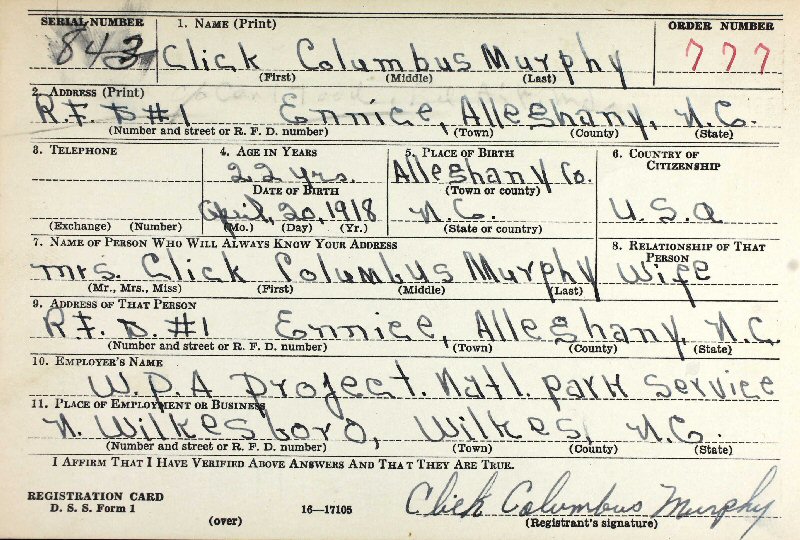 SERIAL NUMBER 1. NAME (Print) ORDER NUMBER
843 Click Columbus Murphy 777
(First) (Middle) (Last)
2. ADDRESS (Print)
R.F.D. #1 Ennice, Alleghany, N.C.
(Number and street or R. F. D. number) (Town) (County) (State)
3. TELEPHONE 4. AGE IN YEARS 5. PLACE OF BIRTH 6. COUNTRY OF CITIZENSHIP
22 yrs. Alleghany Co.
DATE OF BIRTH (Town or county)
April, 20, 1918 N.C. U.S.A
(Exchange) (Number) (Mo.) (Day) (Yr.) (State or country)
7. NAME OF PERSON WHO WILL ALWAYS KNOW YOUR ADDRESS 8. RELATIONSHIP OF THAT PERSON
Mrs. Click Columbus Murphy Wife
(Mr., Mrs., Miss) (First) (Middle) (Last)
9. ADDRESS OF THAT PERSON
R.F.D. #1 Ennice, Alleghany, N.C.
(Number and street or R. F. D. number) (Town) (County) (State)
10. EMPLOYER'S NAME
W.P.A Project. Natl. Park Service
11. PLACE OF EMPLOYMENT OR BUSINESS
N. Wilkesboro, Wilkes, N.C.
(Number and street or R. F. D. number) (Town) (County) (State)
I AFFIRM THAT I HAVE VERIFIED ABOVE ANSWERS AND THAT THEY ARE TRUE.
REGISTRATION CARD
D. S. S. Form 1 16—17105 Click Columbus Murphy
(over) (Registrant's signature)